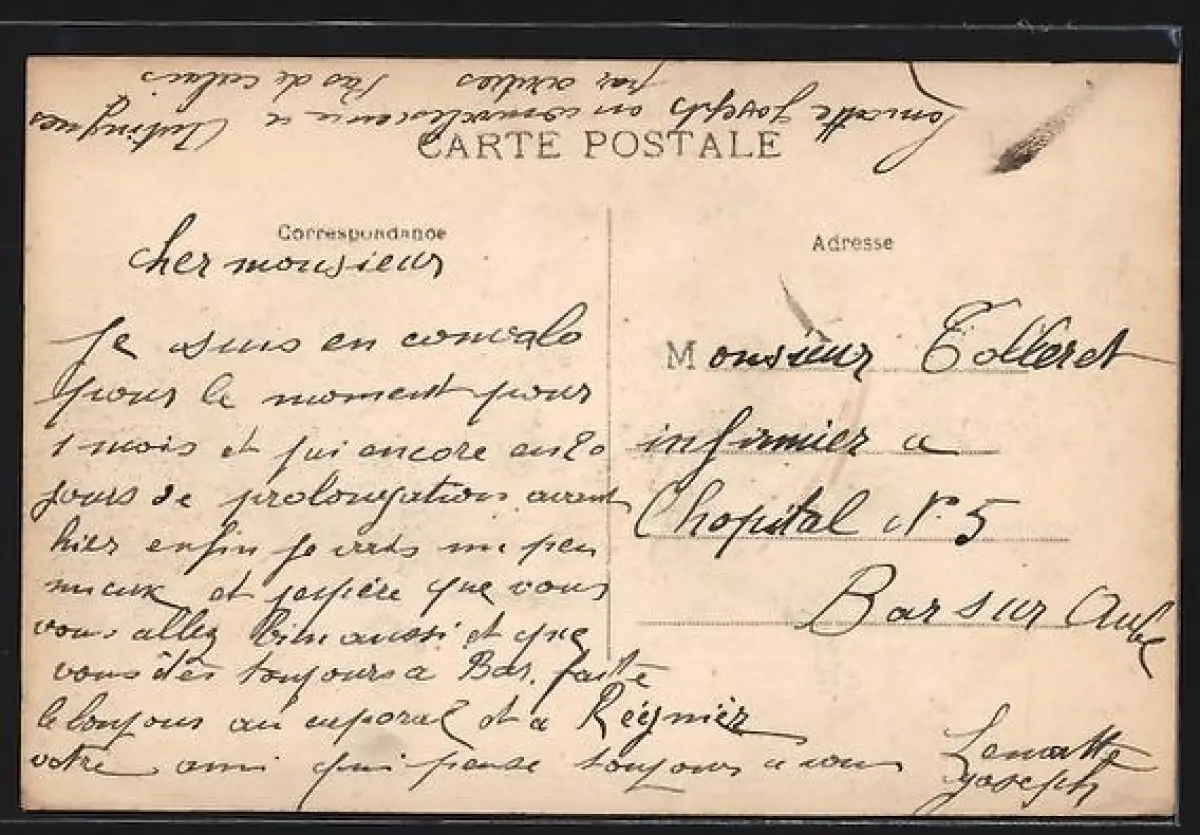 Lamatte Joseph en convalescence a Autingues
par ardres Pas de calais
CARTE POSTALE
Correspondance
Adresse
cher monsieur
Je suis en convalo
pour le moment pour
1 mois et jai encore eu 20
jours de prolongation avant
hier enfin je vais un peu
mieux et jespère que vous
vous allez bien aussi et que
vous êtes toujours a Bar, faite
le bonjour au caporal et a Régnier
votre ami qui pense toujours a vous
Lamatte
joseph
Monsieur Tolleret
infirmier a
Lhopital N° 5
Bar sur Aube